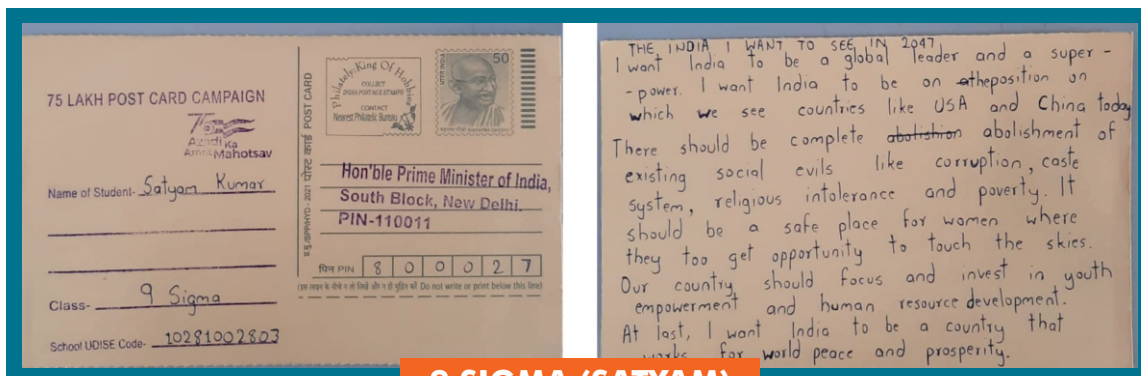 75 LAKH POST CARD CAMPAIGN
75
Azadi Ka
Amrit Mahotsav
Name of Student- Satyam Kumar
Class- 9 Sigma
School UDISE Code- 10281002803
पोस्ट कार्ड POST CARD
Philately: King Of Hobbies
COLLECT
INDIA POSTAGE STAMPS
CONTACT
Nearest Philatelic Bureau
50
Hon'ble Prime Minister of India,
South Block, New Delhi.
PIN-110011
पिन PIN 8 0 0 0 2 7
(इस लाइन के नीचे न तो लिखें और न ही मुद्रित करें Do not write or print below this line)
THE INDIA I WANT TO SEE IN 2047
I want India to be a global leader and a super -
- power. I want India to be on the position on
which we see countries like USA and China today
There should be complete abolishion abolishment of
existing social evils like corruption, caste
system, religious intolerance and poverty. It
should be a safe place for women where
they too get opportunity to touch the skies.
Our country should focus and invest in youth
empowerment and human resource development.
At last, I want India to be a country that
works for world peace and prosperity.
9 SIGMA (SATYAM)